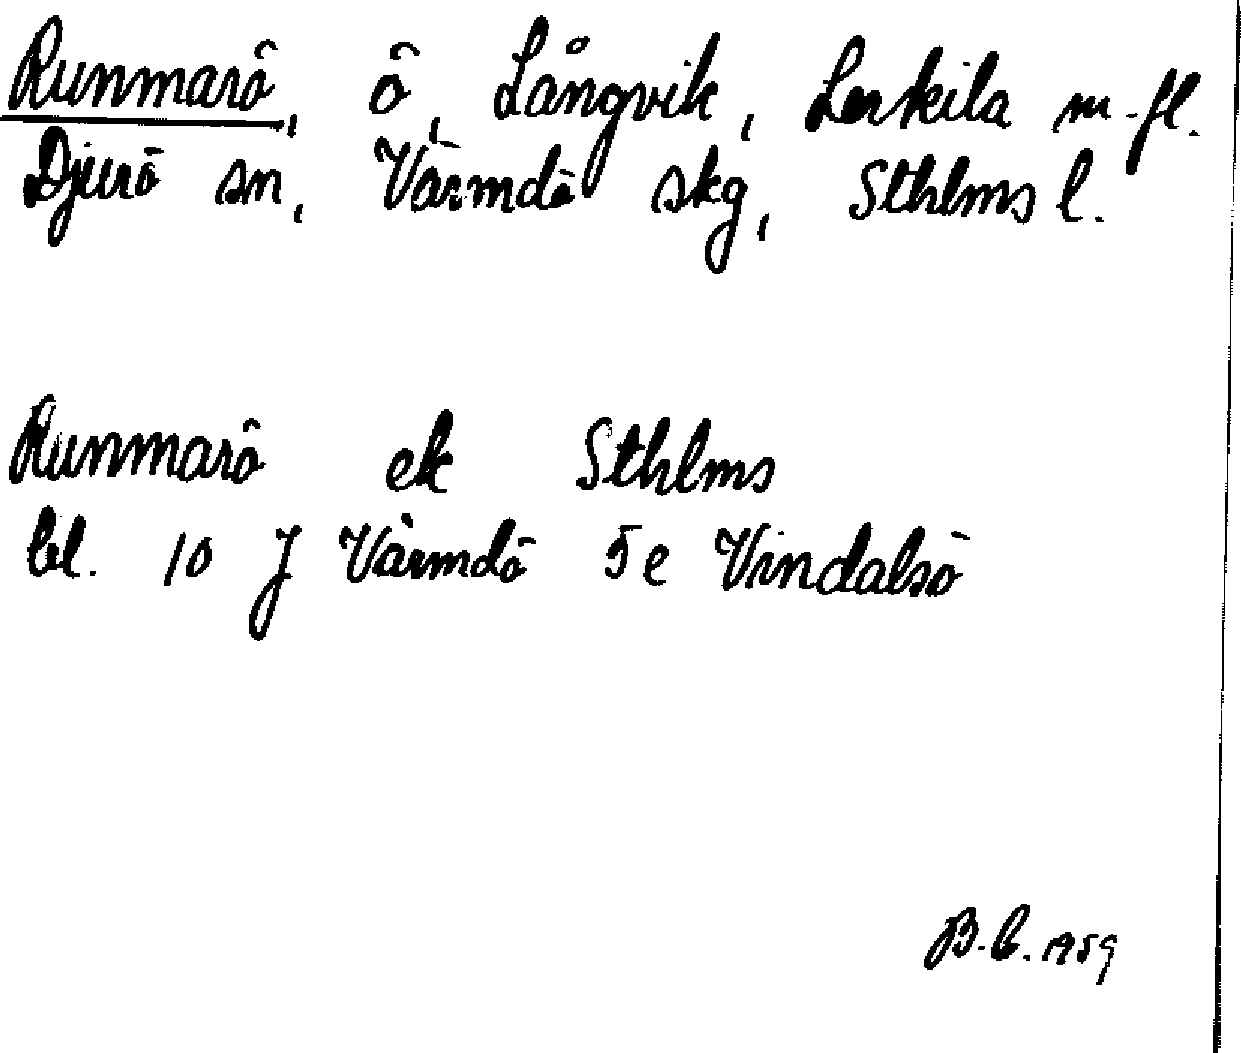 Runmarö, ö, Långvik, Lerkila m.fl.
Djurö sn, Värmdö skg, Sthlms l.
Runmarö ek Sthlms
bl. 10 J Värmdö 5e Vindalsö
B.C. 1959